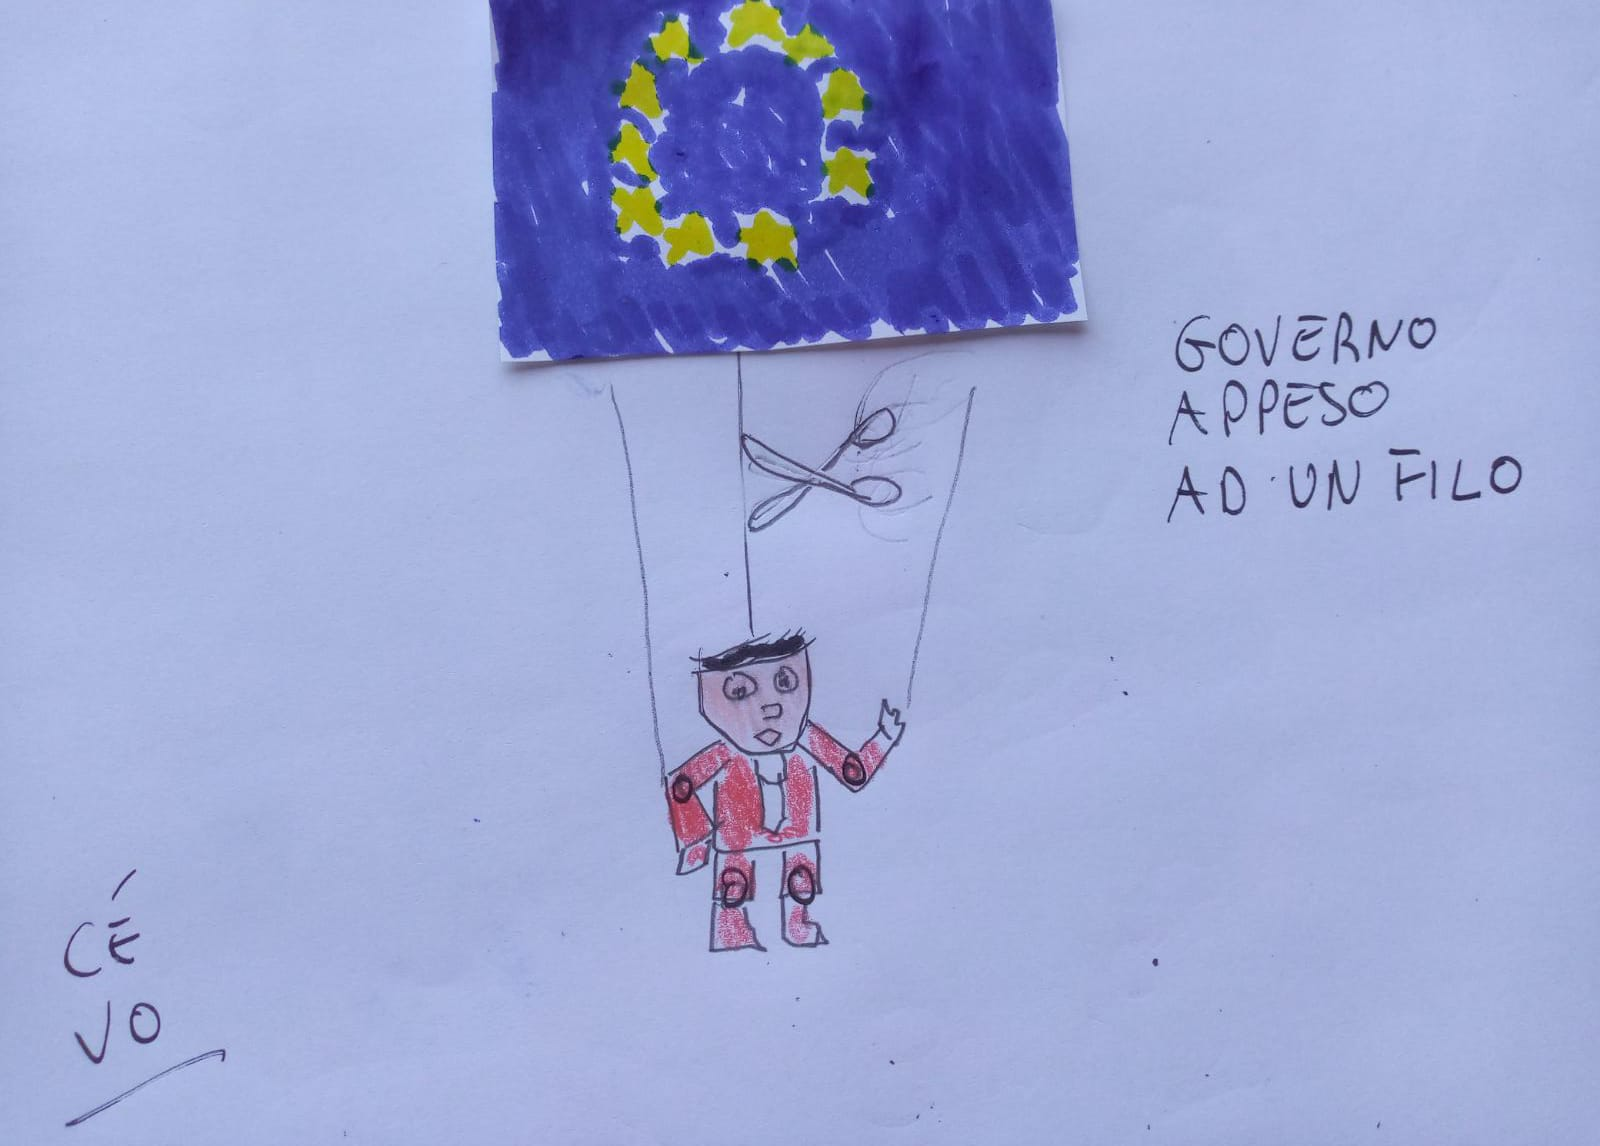 GOVERNO
APPESO
AD UN FILO
CÉ
VO